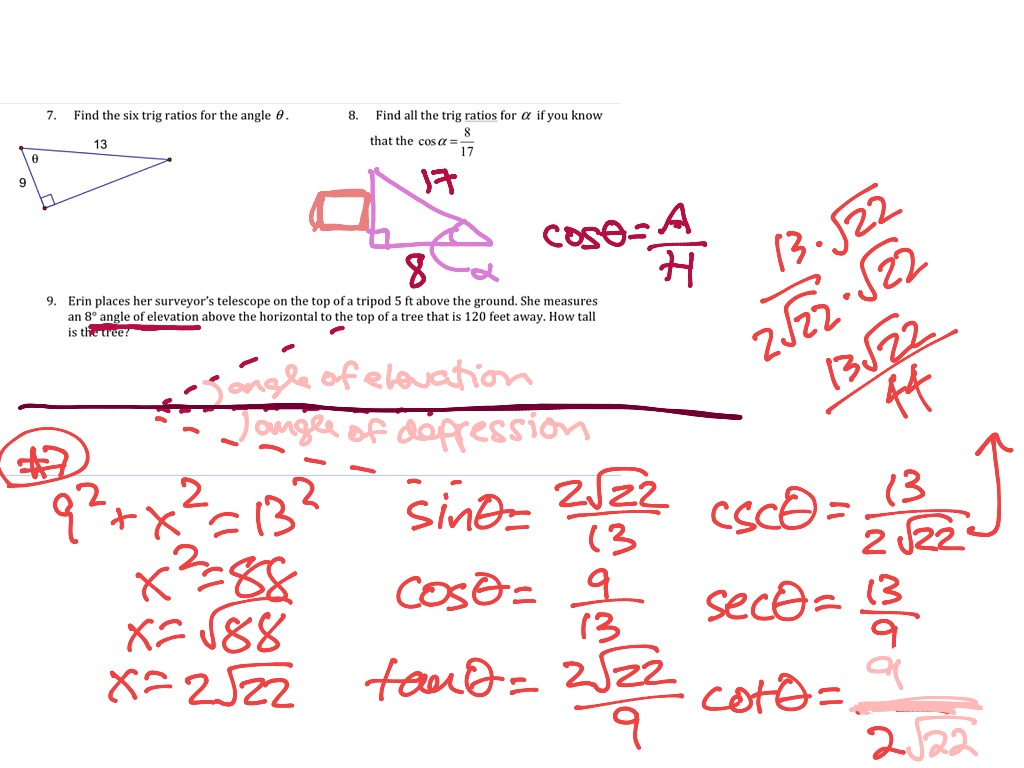 7. Find the six trig ratios for the angle θ.
13
θ
9
8. Find all the trig ratios for α if you know
that the cos α = 8/17
17
8
α
cosθ = A/H
13·√22
2√22·√22
13√22
44
9. Erin places her surveyor's telescope on the top of a tripod 5 ft above the ground. She measures
an 8° angle of elevation above the horizontal to the top of a tree that is 120 feet away. How tall
is the tree?
angle of elevation
angle of depression
#7
9² + x² = 13²
x² = 88
x = √88
x = 2√22
sinθ = 2√22/13
cscθ = 13/2√22
cosθ = 9/13
secθ = 13/9
tanθ = 2√22/9
cotθ = 9/2√22